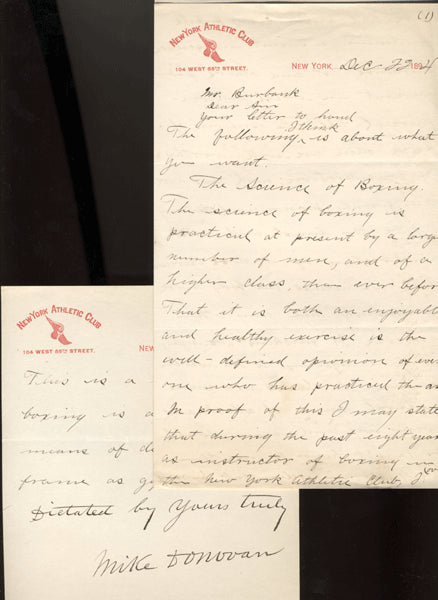 (1)
NEW YORK ATHLETIC CLUB
104 WEST 55TH STREET.
NEW YORK, Dec 22 1894
Mr. Burbank
Dear Sir
Your letter to hand
The following, I think is about what
you want.
The Science of Boxing.
The science of boxing is
practical at present by a large
number of men, and of a
higher class, than ever before
That it is both an enjoyable
and healthy exercise is the
well-defined opinion of every
one who has practical the
In proof of this I may state
that during the past eight years
as instructor of boxing in
the New York Athletic Club, I
NEW YORK ATHLETIC CLUB
104 WEST 55TH STREET.
NE
This is a
boxing is a
means of
frame as
Dictated by Yours truly
Mike Donovan